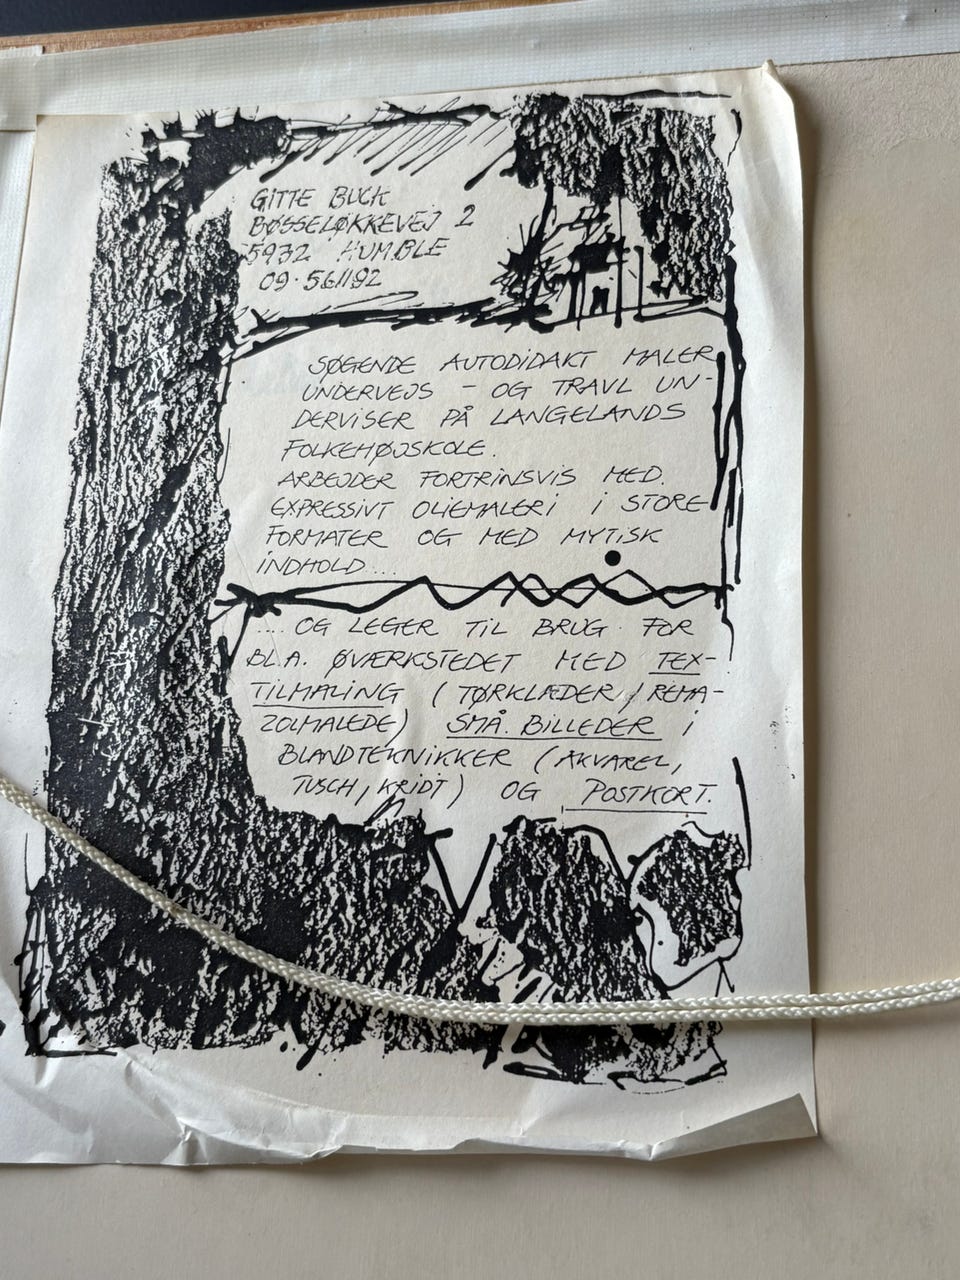 GITTE BUCK
BØSSELØKKEVEJ 2
5932 HUMBLE
09·561192
SØGENDE AUTODIDAKT MALER
UNDERVEJS – OG TRAVL UN-
DERVISER PÅ LANGELANDS
FOLKEHØJSKOLE.
ARBEJDER FORTRINSVIS MED.
EXPRESSIVT OLIEMALERI I STORE
FORMATER OG MED MYTISK
INDHOLD...
.... OG LEGER TIL BRUG FOR
BL.A. ØVÆRKSTEDET MED TEX-
TILMALING (TØRKLÆDER / REMA-
ZOLMALEDE) SMÅ BILLEDER I
BLANDTEKNIKKER (AKVAREL,
TUSCH, KRIDT) OG POSTKORT.